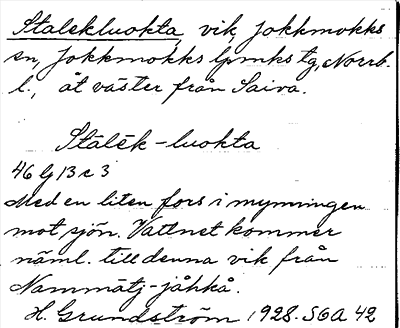 Stalekluokta, vik, Jokkmokks
sn, Jokkmokks lpmks tg, Norrb.
l., åt väster från Saiva.
Stálēk-luokta
46 G 13 c 3
Med en liten fors i mynningen
mot sjön. Vattnet kommer
näml. till denna vik från
Nammatj-jåhkå.
H. Grundström 1928. SGA 42